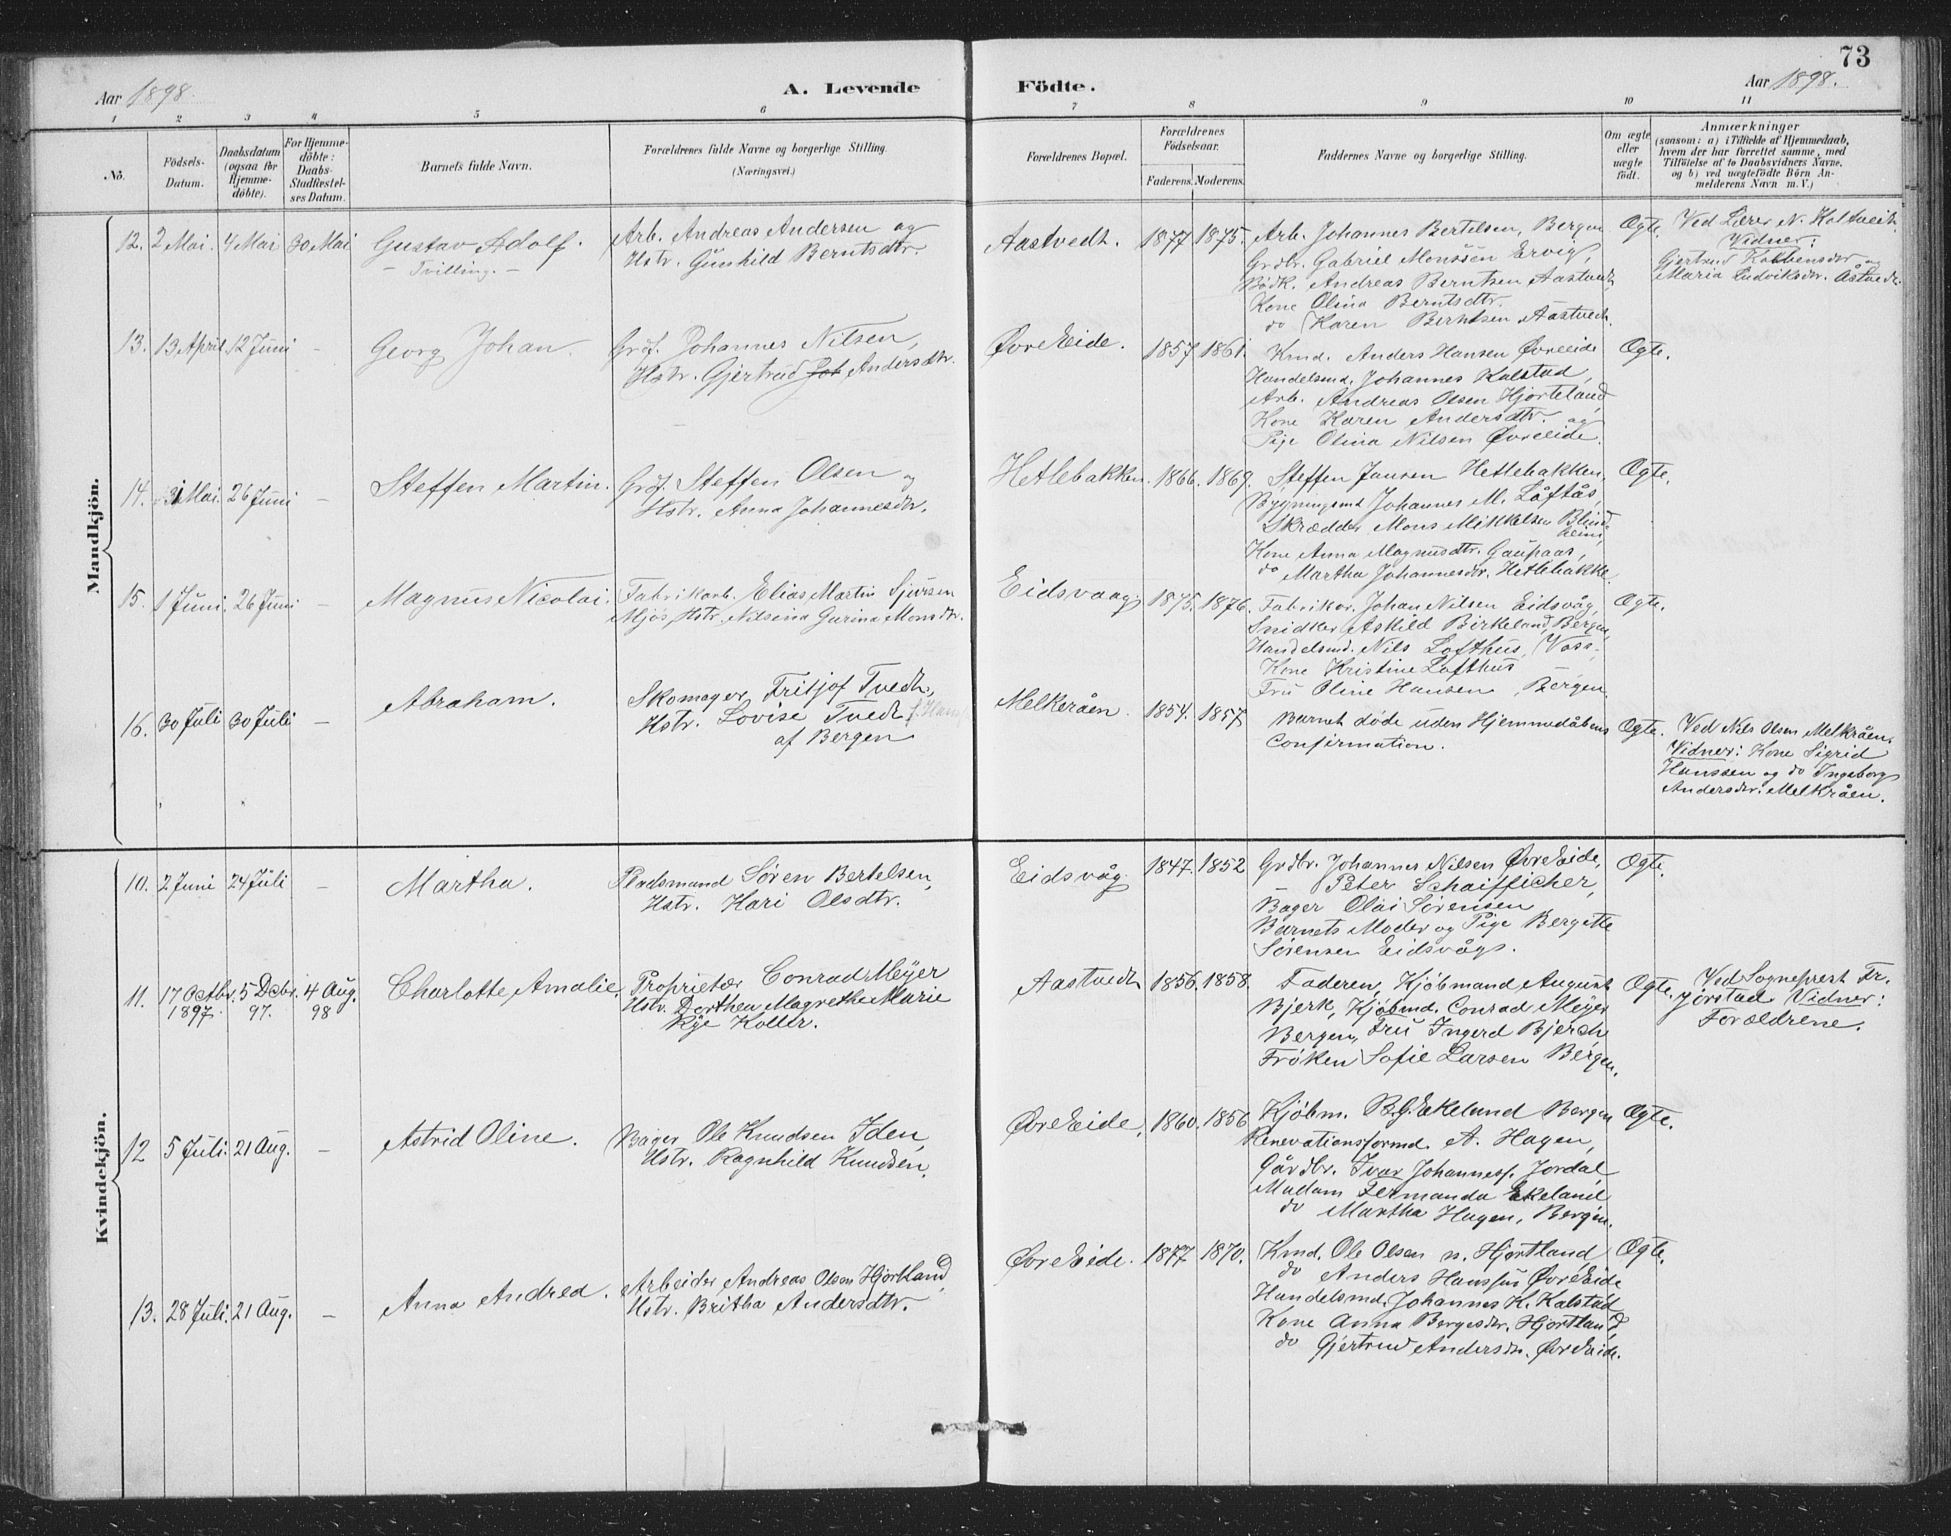 73
Aar 1898. A. Levende Födte. Aar 1898.
1 2 3 4 5 6 7 8 9 10 11
No.
Födsels-
Datum.
Daabsdatum
(ogsaa for
Hjemme-
döbte).
For Hjemme-
döbte:
Daabs-
Stadfæstel-
ses Datum.
Barnets fulde Navn.
Forældrenes fulde Navne og borgerlige Stilling.
(Næringsvei.)
Forældrenes Bopæl.
Forældrenes
Födselsaar.
Faderens. Moderens.
Faddernes Navne og borgerlige Stilling.
Om ægte
eller
uægte
födt.
Anmærkninger
(saasom: a) i Tilfælde af Hjemmedaab,
hvem der har forrettet samme, med
Tilföielse af to Daabsvidners Navne,
og b) ved uægtefödte Börn An-
melderens Navn m. V.)
Mandkjön.
12. 2 Mai. 4 Mai 30 Mai
Gustav Adolf.
- Tvilling. -
Arb. Andreas Andersen og
Hstr. Gunhild Berntsdtr.
Aastvedt. 1877 1875.
Arb. Johannes Bertelsen, Bergen
Grdbr. Gabriel Monssen Ervig,
Bødk. Andreas Berntsen Aastvedt
Kone Olina Berntsdtr.
do Karen Berntsen Aastvedt.
Ægte.
Ved Lærer N. Kaltveit.
Vidner:
Gjertrud Kobbensdtr og
Maria Ludviksdtr. Åstvedt.
13. 13 April. 12 Juni -
Georg Johan.
Gröf. Johannes Nilsen,
Hstr. Gjertrud Joh Andersdtr.
Øvre Eide. 1857 1861.
Kmd. Anders Hansen Øvreeide
Handelsmd. Johannes Kalstad,
Arb. Andreas Olsen Hjorteland,
Kone Karen Andersdtr. og
Pige Olina Nilsen Øvreeide.
Ægte.
14. 31 Mai. 26 Juni -
Steffen Martin.
Gröf. Steffen Olsen og
Hstr. Anna Johannesdtr.
Hetlebakken. 1866. 1869.
Steffen Jansen Hetlebakken,
Bygningsmd Johannes M. Låftås,
Skrædder Mons Mikkelsen Blind-
heim,
Kone Anna Magnusdtr. Gaupaas,
do Martha Johannesdtr. Hetlebakke.
Ægte.
15. 1 Juni. 26 Juni -
Magnus Nicolai.
Fabrikarb. Elias Martin Sjursen
Mjøs, Hstr. Nilsina Gurina Monsdtr.
Eidsvaag. 1875. 1876.
Fabrikar. Johan Nilsen Eidsvåg,
Snidker Askild Birkeland, Bergen,
Handelsmd. Nils Lofthus, Voss.
Kone Kristine Lofthus -
Fru Oline Hansen, Bergen.
Ægte.
16. 30 Juli 30 Juli -
Abraham.
Skomager Fritjof Tvedt,
Hstr. Lovise Tvedt
af Bergen.
Melkeråen. 1854. 1857
Barnet døde uden Hjemmedåbens
Confirmation.
Ægte.
Ved Nils Olsen Melkråen.
Vidner: Kone Sigrid
Hanssen og do Ingeborg
Andersdtr. Melkråen.
Kvindekjön.
10. 2 Juni 24 Juli -
Martha.
Pladsmand Søren Bertelsen,
Hstr. Kari Olsdtr.
Eidsvåg. 1847. 1852
Grdbr. Johannes Nilsen Øvre Eide,
Peter Schaifficher,
Bager Olai Sørensen
Barnets Moder og Pige Bergette
Sørensen Eidsvåg.
Ægte.
11. 17 Octbr. 5 Dcbr. 4 Aug.
1897. 97. 98
Charlotte Amalie.
Proprietær Conrad Meyer
Hstr. Dorthea Magrethe Marie
Rye Koller.
Aastvedt 1856. 1858.
Faderen, Kjöbmand August
Bjerk, Kjöbmd. Conrad Meyer
Bergen, Fru Ingerd Bjerck
Fröken Sofie Larsen Bergen.
Ægte.
Ved Sogneprest Fr.
Gjørstad. Vidner:
Forældrene.
12 5 Juli. 21 Aug. -
Astrid Oline.
Bager Ole Knudsen Iden,
Hstr. Ragnhild Knudsen.
Øvre Eide. 1860. 1856
Kjöbm. B. G. Ekeland Bergen
Renovationsformd. A. Hagen,
Gårdbr. Ivar Johanness. Jordal,
Madam Fermanda Ekeland
do Martha Hagen, Bergen.
Ægte.
13. 28 Juli. 21 Aug. -
Anna Andrea.
Arbeider Andreas Olsen Hjortland,
Hstr. Britha Andersdtr.
Øvre Eide. 1877 1870.
Kmd. Ole Olsen n. Hjortland
do Anders Hanssen Øvre Eide
Handelsmd. Johannes K. Kalstad
Kone Anna Bergesdtr. Hjortland,
do Gjertrud Andersdtr. Øvre Eide.
Ægte.